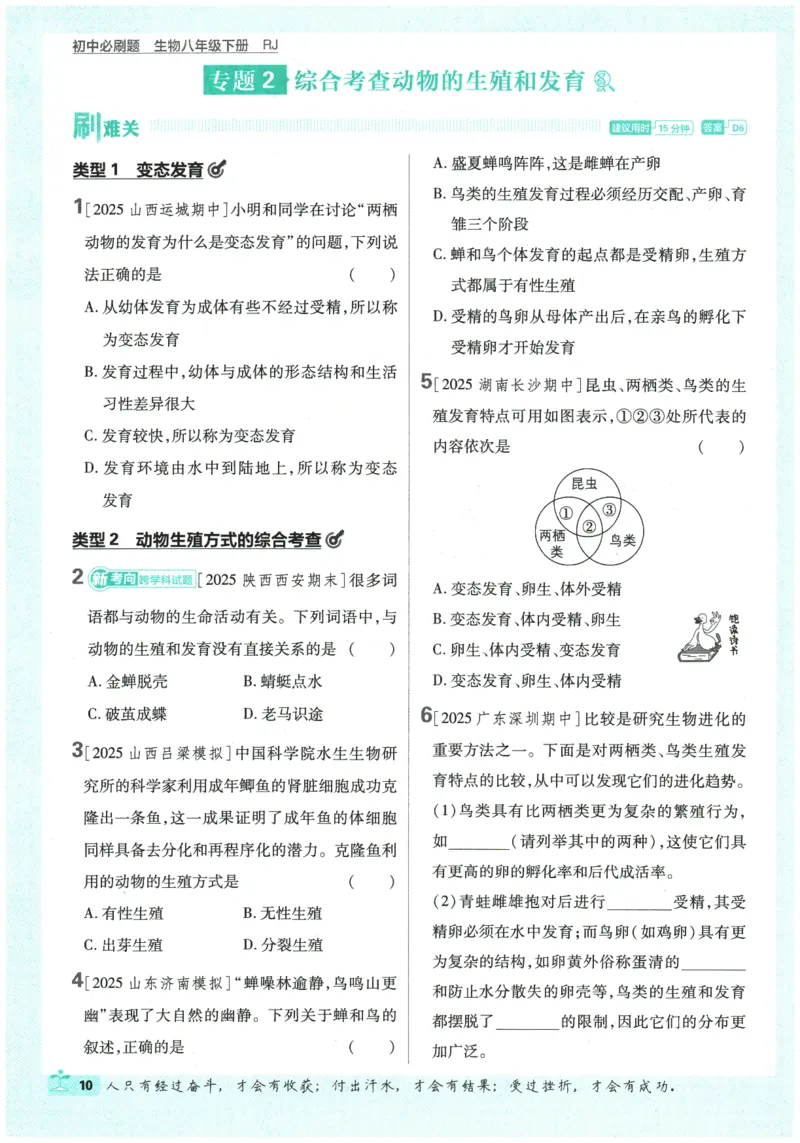 初中必刷题 生物八年级下册 RJ
专题2 综合考查动物的生殖和发育
刷难关
建议用时 15分钟 答案 D6
类型1 变态发育
1[2025山西运城期中]小明和同学在讨论“两栖
动物的发育为什么是变态发育”的问题,下列说
法正确的是 ( )
A. 从幼体发育为成体有些不经过受精,所以称
为变态发育
B. 发育过程中,幼体与成体的形态结构和生活
习性差异很大
C. 发育较快,所以称为变态发育
D. 发育环境由水中到陆地上,所以称为变态
发育
类型2 动物生殖方式的综合考查
2 新考向 跨学科试题 [2025陕西西安期末]很多词
语都与动物的生命活动有关。下列词语中,与
动物的生殖和发育没有直接关系的是 ( )
A. 金蝉脱壳 B. 蜻蜓点水
C. 破茧成蝶 D. 老马识途
3[2025山西吕梁模拟]中国科学院水生生物研
究所的科学家利用成年鲫鱼的肾脏细胞成功克
隆出一条鱼,这一成果证明了成年鱼的体细胞
同样具备去分化和再程序化的潜力。克隆鱼利
用的动物的生殖方式是 ( )
A. 有性生殖 B. 无性生殖
C. 出芽生殖 D. 分裂生殖
4[2025山东济南模拟]“蝉噪林逾静,鸟鸣山更
幽”表现了大自然的幽静。下列关于蝉和鸟的
叙述,正确的是 ( )
A. 盛夏蝉鸣阵阵,这是雌蝉在产卵
B. 鸟类的生殖发育过程必须经历交配、产卵、育
雏三个阶段
C. 蝉和鸟个体发育的起点都是受精卵,生殖方
式都属于有性生殖
D. 受精的鸟卵从母体产出后,在亲鸟的孵化下
受精卵才开始发育
5[2025湖南长沙期中]昆虫、两栖类、鸟类的生
殖发育特点可用如图表示,①②③处所代表的
内容依次是 ( )
昆虫
① ③
②
两栖
类
鸟类
A. 变态发育、卵生、体外受精
B. 变态发育、体内受精、卵生
C. 卵生、体内受精、变态发育
D. 变态发育、卵生、体内受精
饱读诗书
6[2025广东深圳期中]比较是研究生物进化的
重要方法之一。下面是对两栖类、鸟类生殖发
育特点的比较,从中可以发现它们的进化趋势。
(1)鸟类具有比两栖类更为复杂的繁殖行为,
如________(请列举其中的两种),这使它们具
有更高的卵的孵化率和后代成活率。
(2)青蛙雌雄抱对后进行________受精,其受
精卵必须在水中发育;而鸟卵(如鸡卵)具有更
为复杂的结构,如卵黄外俗称蛋清的________
和防止水分散失的卵壳等,鸟类的生殖和发育
都摆脱了________的限制,因此它们的分布更
加广泛。
10 人只有经过奋斗,才会有收获;付出汗水,才会有结果;受过挫折,才会有成功.